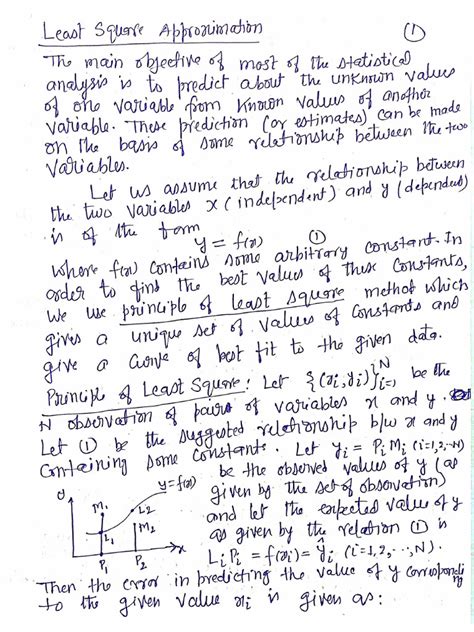 Least Square Approximation
①
The main objective of most of the statistical
analysis is to predict about the unknown values
of one variable from known values of another
variable. These prediction (or estimates) can be made
on the basis of some relationship between the two
variables.
Let us assume that the relationship between
the two variables x (independent) and y (dependent)
is of the form
y = f(x) ①
where f(x) contains some arbitrary constant. In
order to find the best values of these constants,
we use principle of least square method which
gives a unique set of values of constants and
give a curve of best fit to the given data.
Principle of Least Square: Let {(xi, yi)}ᴺi=1 be the
N observation of pairs of variables x and y.
Let ① be the suggested relationship b/w x and y
containing some constants. Let yi = PiMi (i=1,2,..N)
be the observed values of y (as
given by the set of observation)
and let the expected value of y
as given by the relation ① is
LiPi = f(xi) = ŷi (i=1,2,..,N).
y
y=f(x)
M1
L2
L1
M2
P1
P2
x
Then the error in predicting the value of y corresponding
to the given value xi is given as: